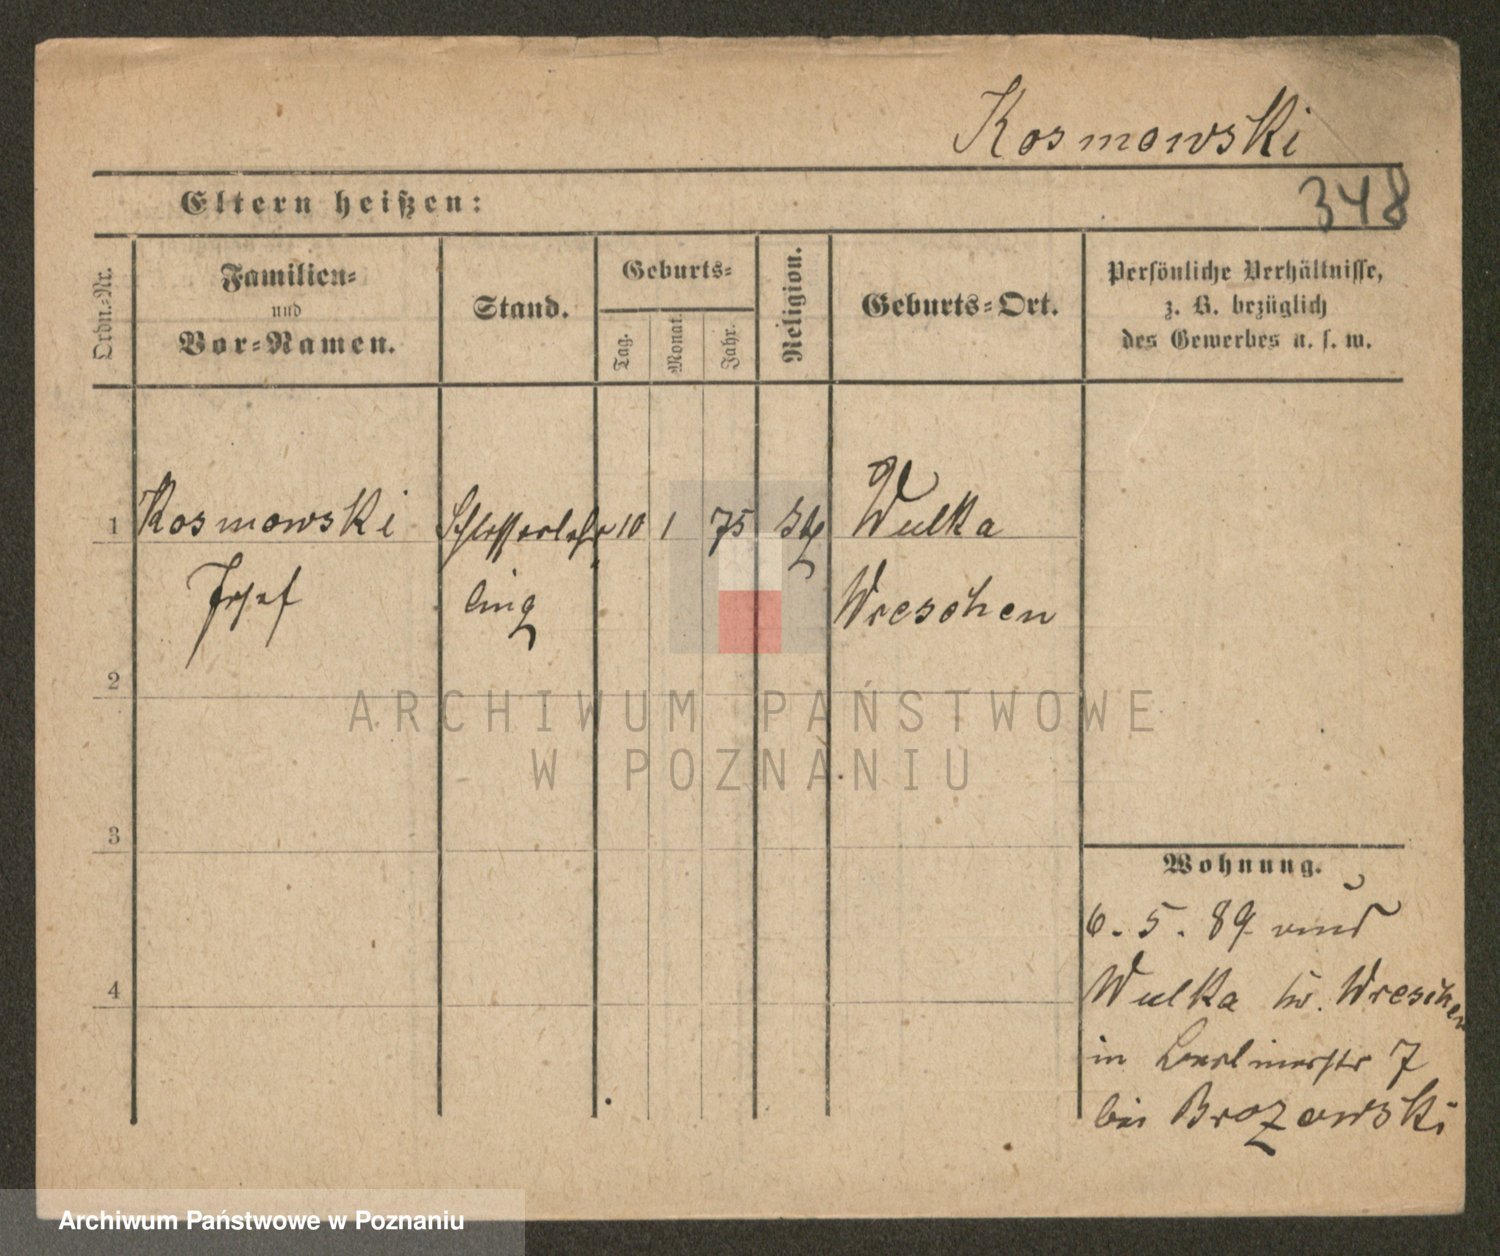 Kosmowski
348
Eltern heißen:
Ordn.-Nr.
Familien-
und
Vor-Namen.
Stand.
Geburts-
Tag.
Monat.
Jahr.
Religion.
Geburts-Ort.
Persönliche Verhältnisse,
z. B. bezüglich
des Gewerbes u. s. w.
1 Kosmowski Schlosserlehr 10 1 75 Wulka
Josef ling Wreschen
2
3
4
Wohnung.
6. 5. 89
Wulka Kr. Wreschen
in Berlinerstr 7
bei Brozowski
ARCHIWUM PAŃSTWOWE
W POZNANIU
Archiwum Państwowe w Poznaniu